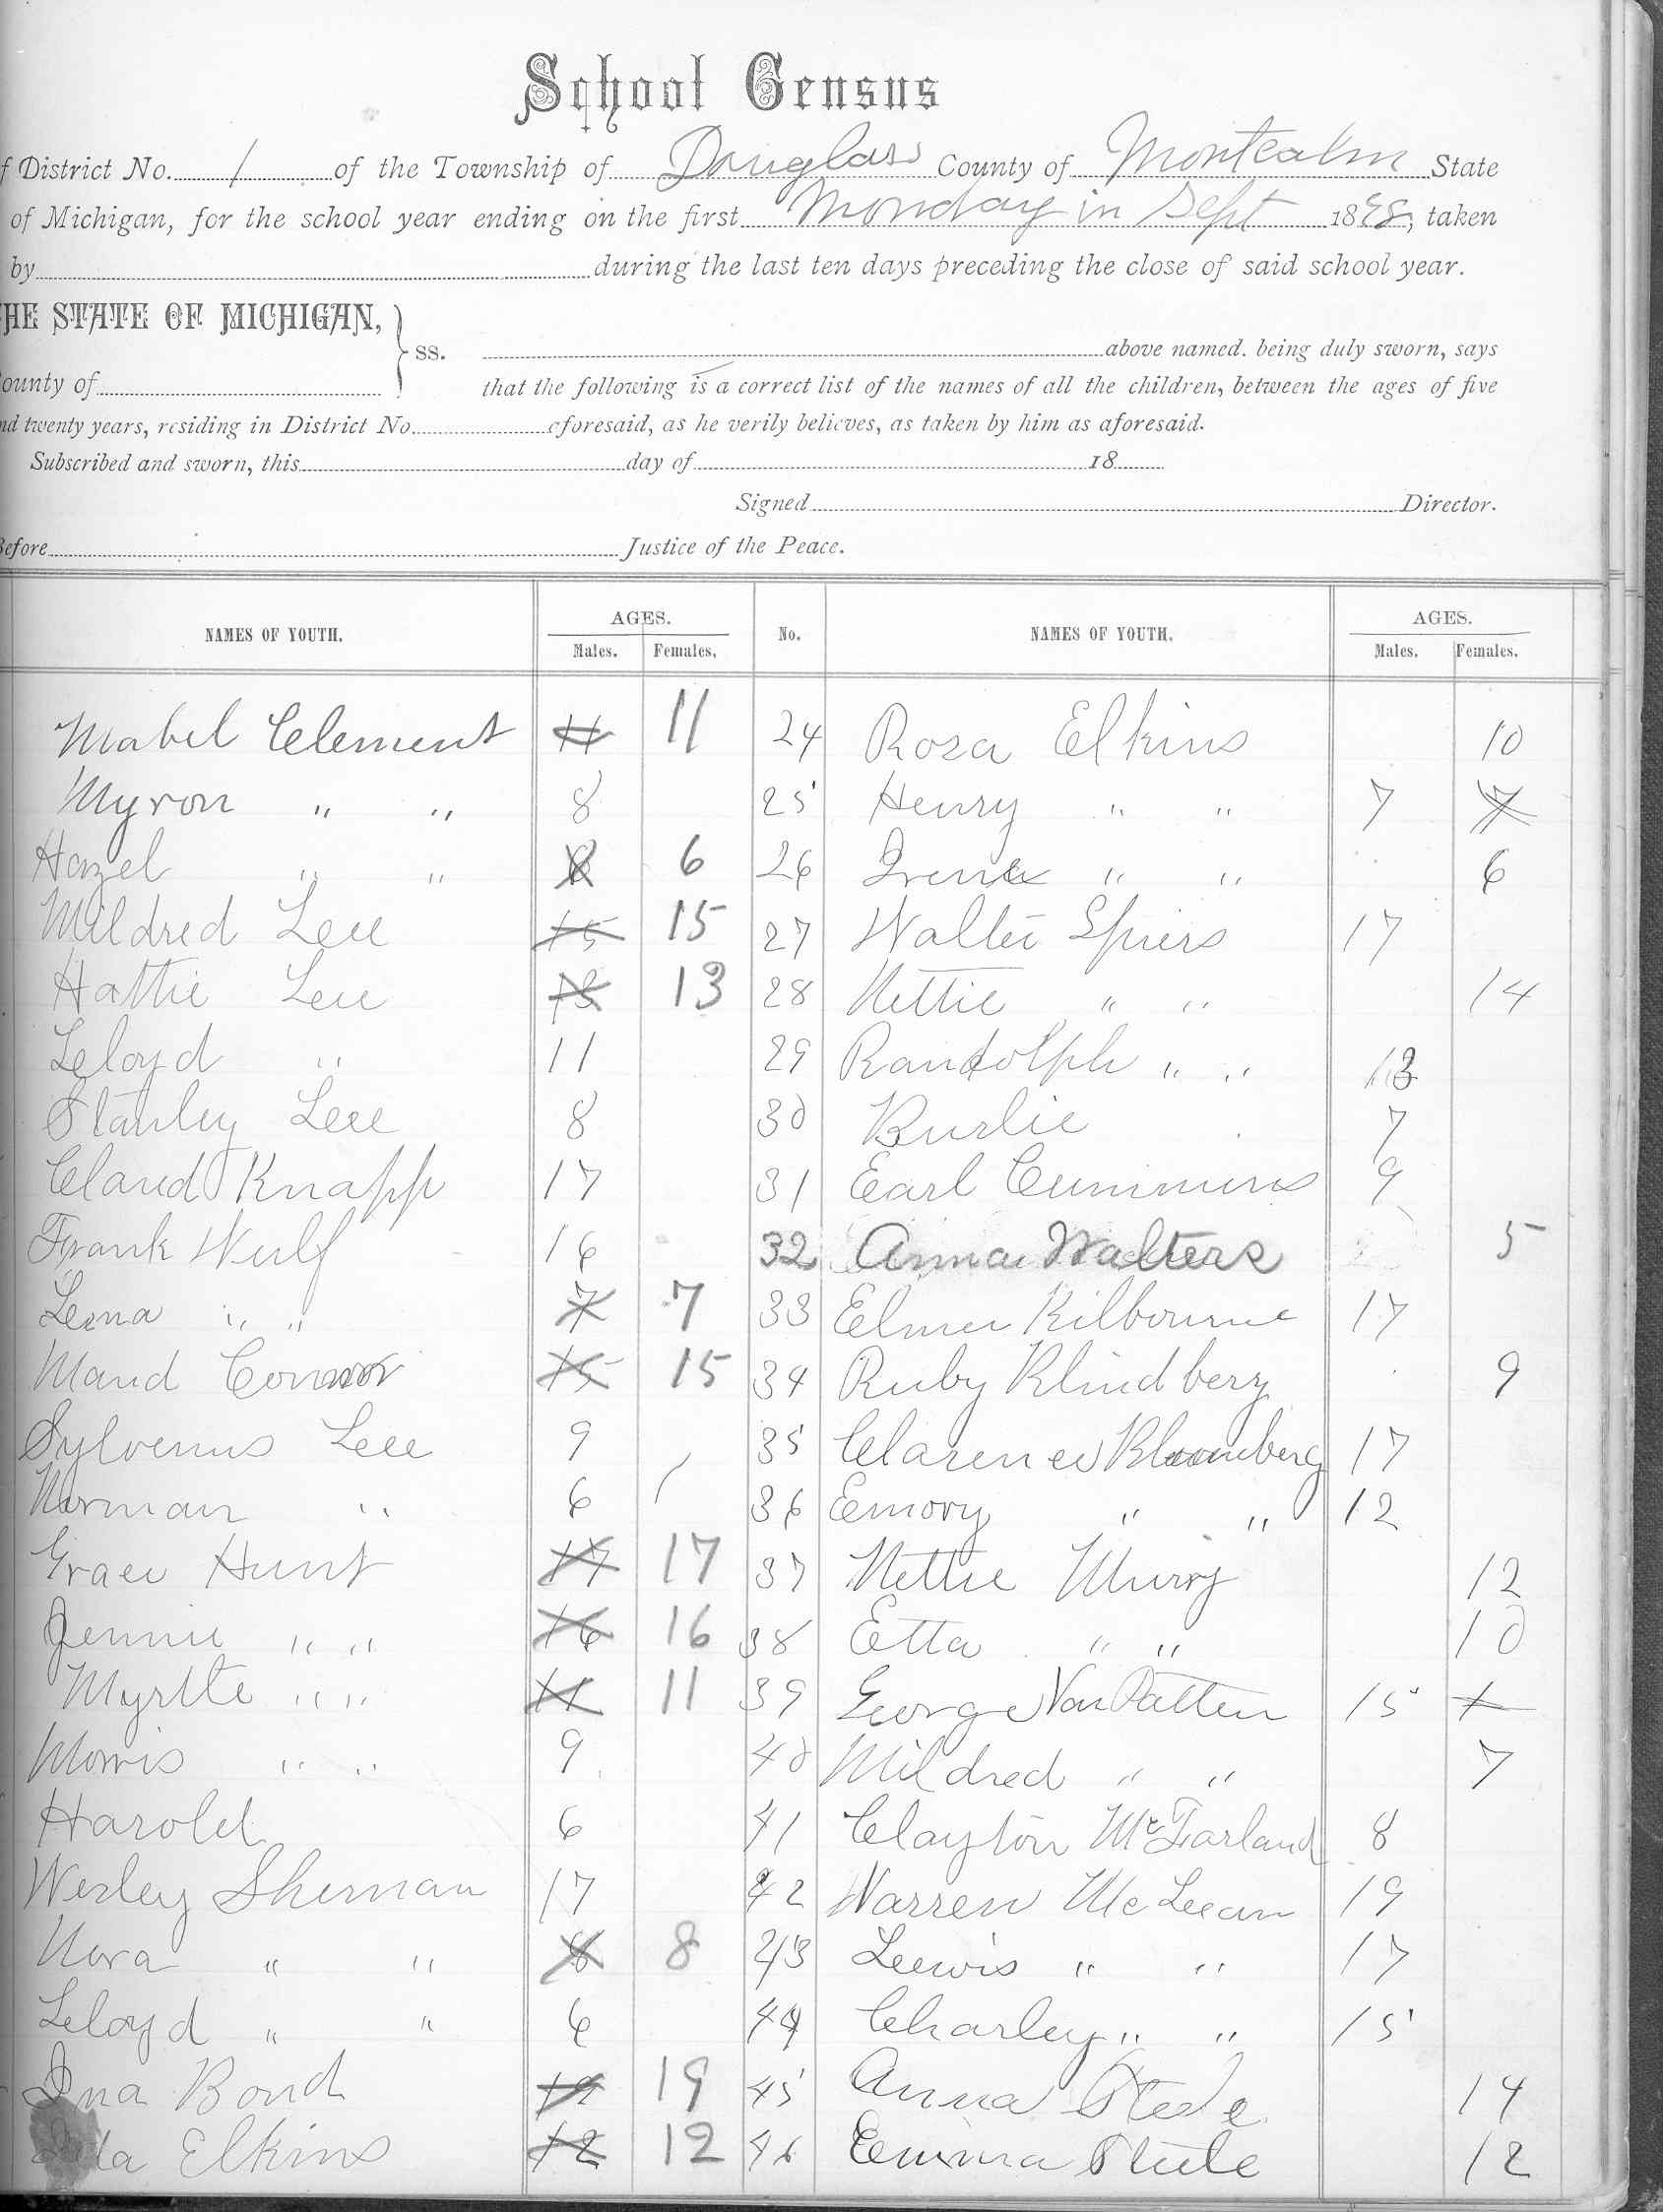 School Census
f District No. 1 of the Township of Douglass County of Montcalm State
of Michigan, for the school year ending on the first Monday in Sept 1898, taken
by during the last ten days preceding the close of said school year.
HE STATE OF MICHIGAN, } ss. above named. being duly sworn, says
ounty of that the following is a correct list of the names of all the children, between the ages of five
nd twenty years, residing in District No. aforesaid, as he verily believes, as taken by him as aforesaid.
Subscribed and sworn, this day of 18
Signed Director.
Before Justice of the Peace.
NAMES OF YOUTH. AGES. Males. Females. No. NAMES OF YOUTH. AGES. Males. Females.
Mabel Clement 11 11 24 Rosa Elkins 10
Myron " " 8 25 Henry " " 7 7
Hazel " " 6 6 26 Irene " " 6
Mildred Lee 15 15 27 Walter Spiers 17
Hattie Lee 13 13 28 Nettie " " 14
Leloyd " 11 29 Randolph " " 13
Stanley Lee 8 30 Burlie 7
Claud Knapp 17 31 Earl Cummins 9
Frank Wulf 16 32 Anna Walters 5
Lena " " 7 7 33 Elmer Kilbourne 17
Maud Connor 15 15 34 Ruby Klindberg 9
Sylvenus Lee 9 35 Clarence Bloomberg 17
Norman " 6 36 Emory " " 12
Grace Hunt 17 17 37 Nettie Murry 12
Jennie " " 16 16 38 Etta " " 10
Myrtle " " 11 11 39 George Van Patten 15 1
Morris " " 9 40 Mildred " " 7
Harold 6 41 Clayton McFarland 8
Wesley Sherman 17 42 Warren McLean 19
Nora " " 8 8 43 Leewis " " 17
Leloyd " " 6 44 Charley " " 15
Ina Bond 19 19 45 Anna Steele 14
Elkins 12 12 46 Emma Steele 12